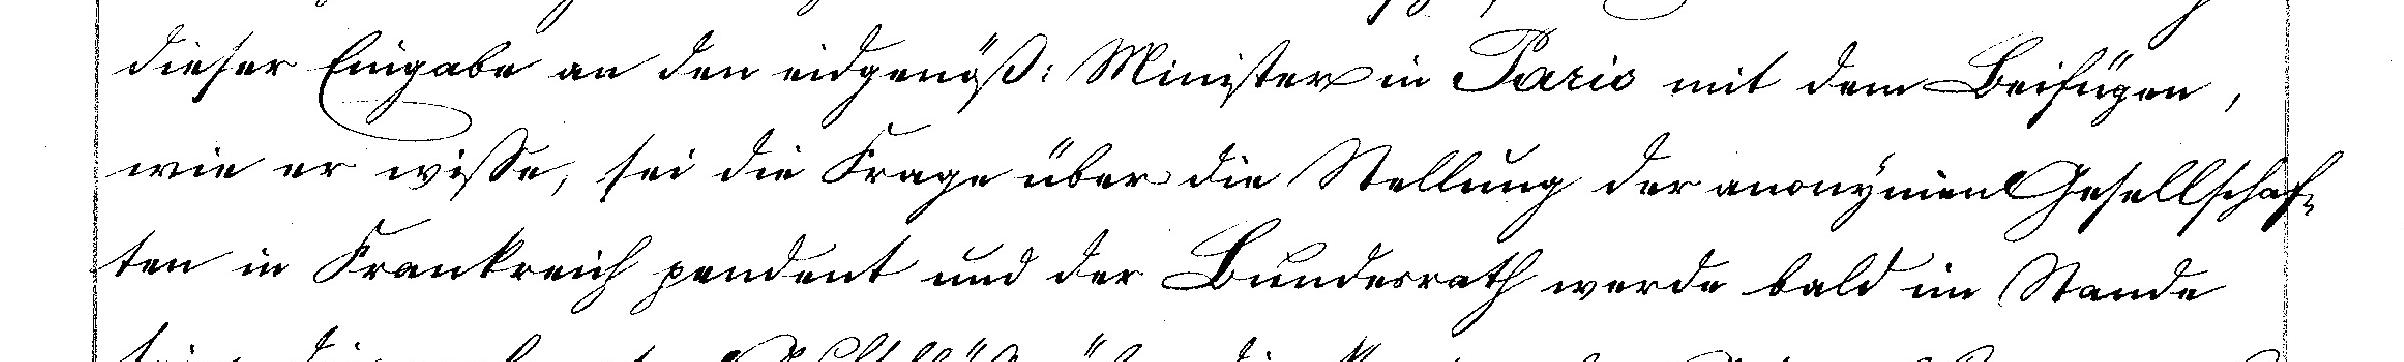 dieser Eingabe an den eidgenöß: Minister in Paris mit dem Beifügen,
wie er wisse, sei die Frage über die Stellung der anonymen Gesellschaf-
ten in Frankreich pendent und der Bundesrath werde bald im Stande